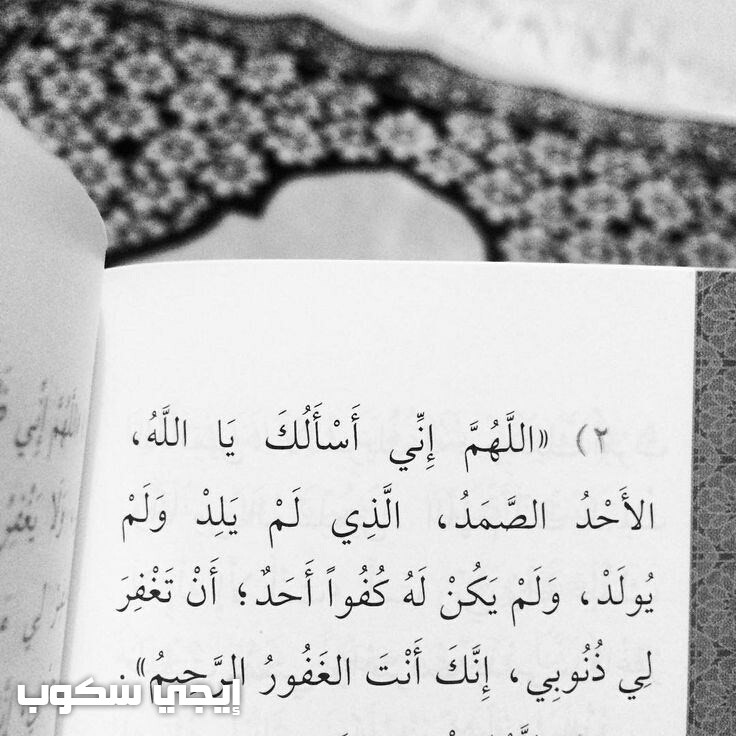 ٢) «اللَّهُمَّ إِنِّي أَسْأَلُكَ يَا اللَّهُ،
الأَحْدُ الصَّمدُ، الَّذِي لَمْ يَلِدْ وَلَمْ
يُولَدْ، وَلَمْ يَكُنْ لَهُ كُفُواً أَحَدٌ؛ أَنْ تَغْفِرَ
لِي ذُنُوبِي، إِنَّكَ أَنْتَ الغَفُورُ الرَّحِيمُ».
إيجي سكوب